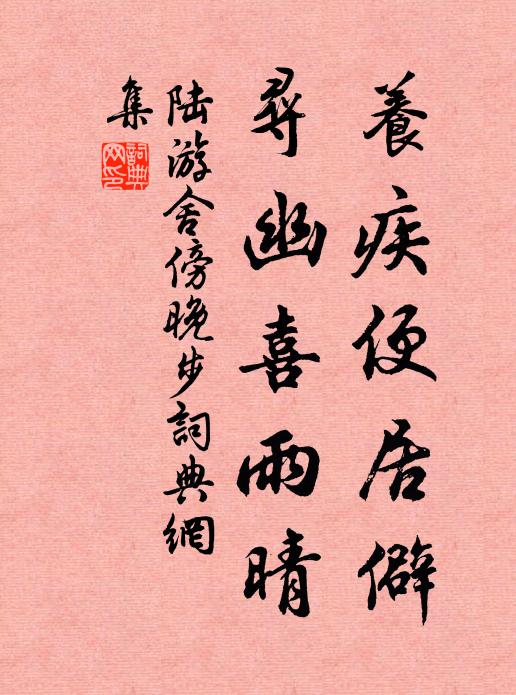 養疾便居僻
尋幽喜雨晴
陆游舍傍晚步詞典網
集
詞典
网印